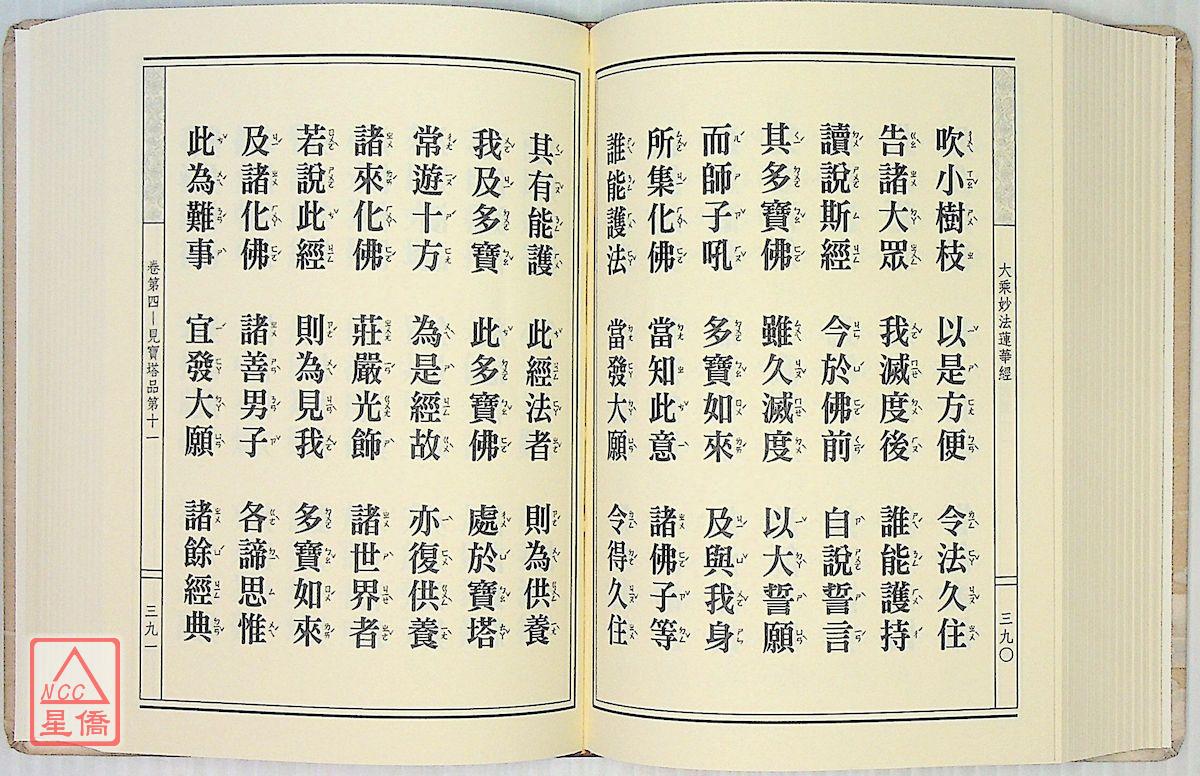 大乘妙法蓮華經
三九〇
吹小樹枝 以是方便 令法久住
告諸大眾 我滅度後 誰能護持
讀說斯經 今於佛前 自說誓言
其多寶佛 雖久滅度 以大誓願
而師子吼 多寶如來 及與我身
所集化佛 當知此意 諸佛子等
誰能護法 當發大願 令得久住
其有能護 此經法者 則為供養
我及多寶 此多寶佛 處於寶塔
常遊十方 為是經故 亦復供養
諸來化佛 莊嚴光飾 諸世界者
若說此經 則為見我 多寶如來
及諸化佛 諸善男子 各諦思惟
此為難事 宜發大願 諸餘經典
卷第四—見寶塔品第十一
三九一
NCC
星僑